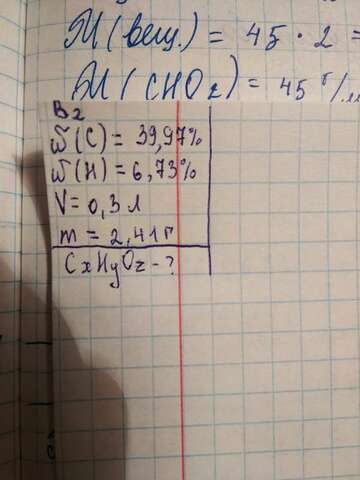 M(вещ.) = 45 · 2 =
M(CHO₂) = 45 г/м
В2
ω(C) = 39,97%
ω(H) = 6,73%
V = 0,3 л
m = 2,41 г
CxHyOz - ?